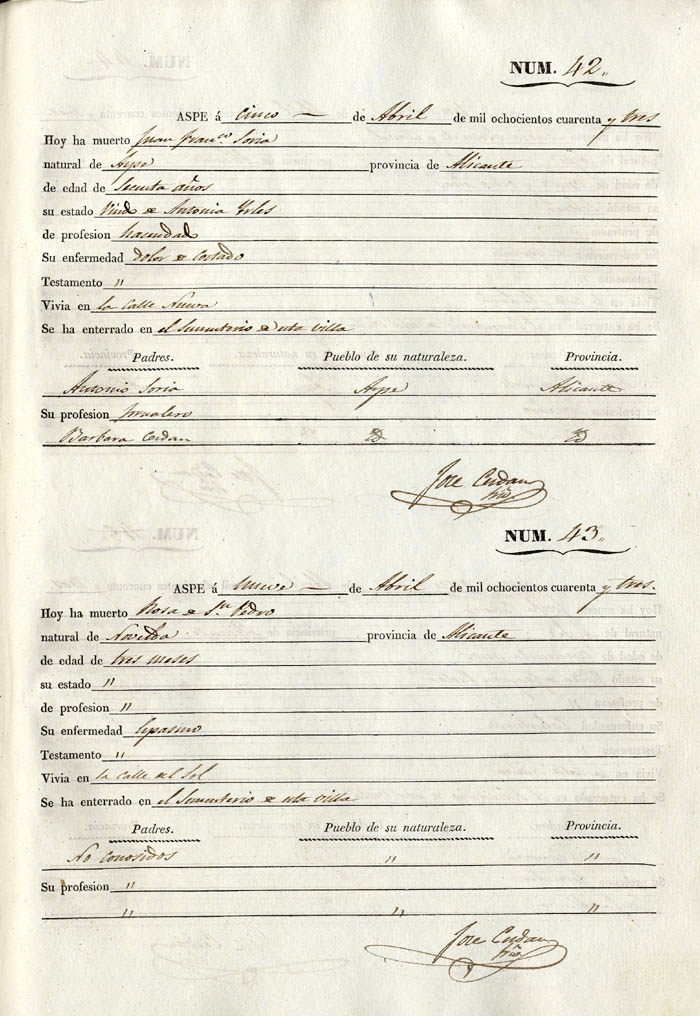 NUM. 42„
ASPE á Cinco — de Abril de mil ochocientos cuarenta y tres
Hoy ha muerto Juan Franco. Soria
natural de Aspe provincia de Alicante
de edad de Secenta años
su estado Viudo de Antonia Yrles
de profesion hacendad
Su enfermedad dolor de Costado
Testamento "
Vivia en la Calle Nueva
Se ha enterrado en el Sementerio de esta Villa
Padres. Pueblo de su naturaleza. Provincia.
Antonio Soria Aspe Alicante
Su profesion Jornalero
Barbara Cerdan Yd Yd
Jose Cerdan
NUM. 43„
ASPE á nueve — de Abril de mil ochocientos cuarenta y tres.
Hoy ha muerto Rosa de Sn. Pedro
natural de Novelda provincia de Alicante
de edad de tres meses
su estado "
de profesion "
Su enfermedad Espasmo
Testamento "
Vivia en la Calle del Sol
Se ha enterrado en el Sementerio de esta Villa
Padres. Pueblo de su naturaleza. Provincia.
No conosidos " "
Su profesion "
" " "
Jose Cerdan